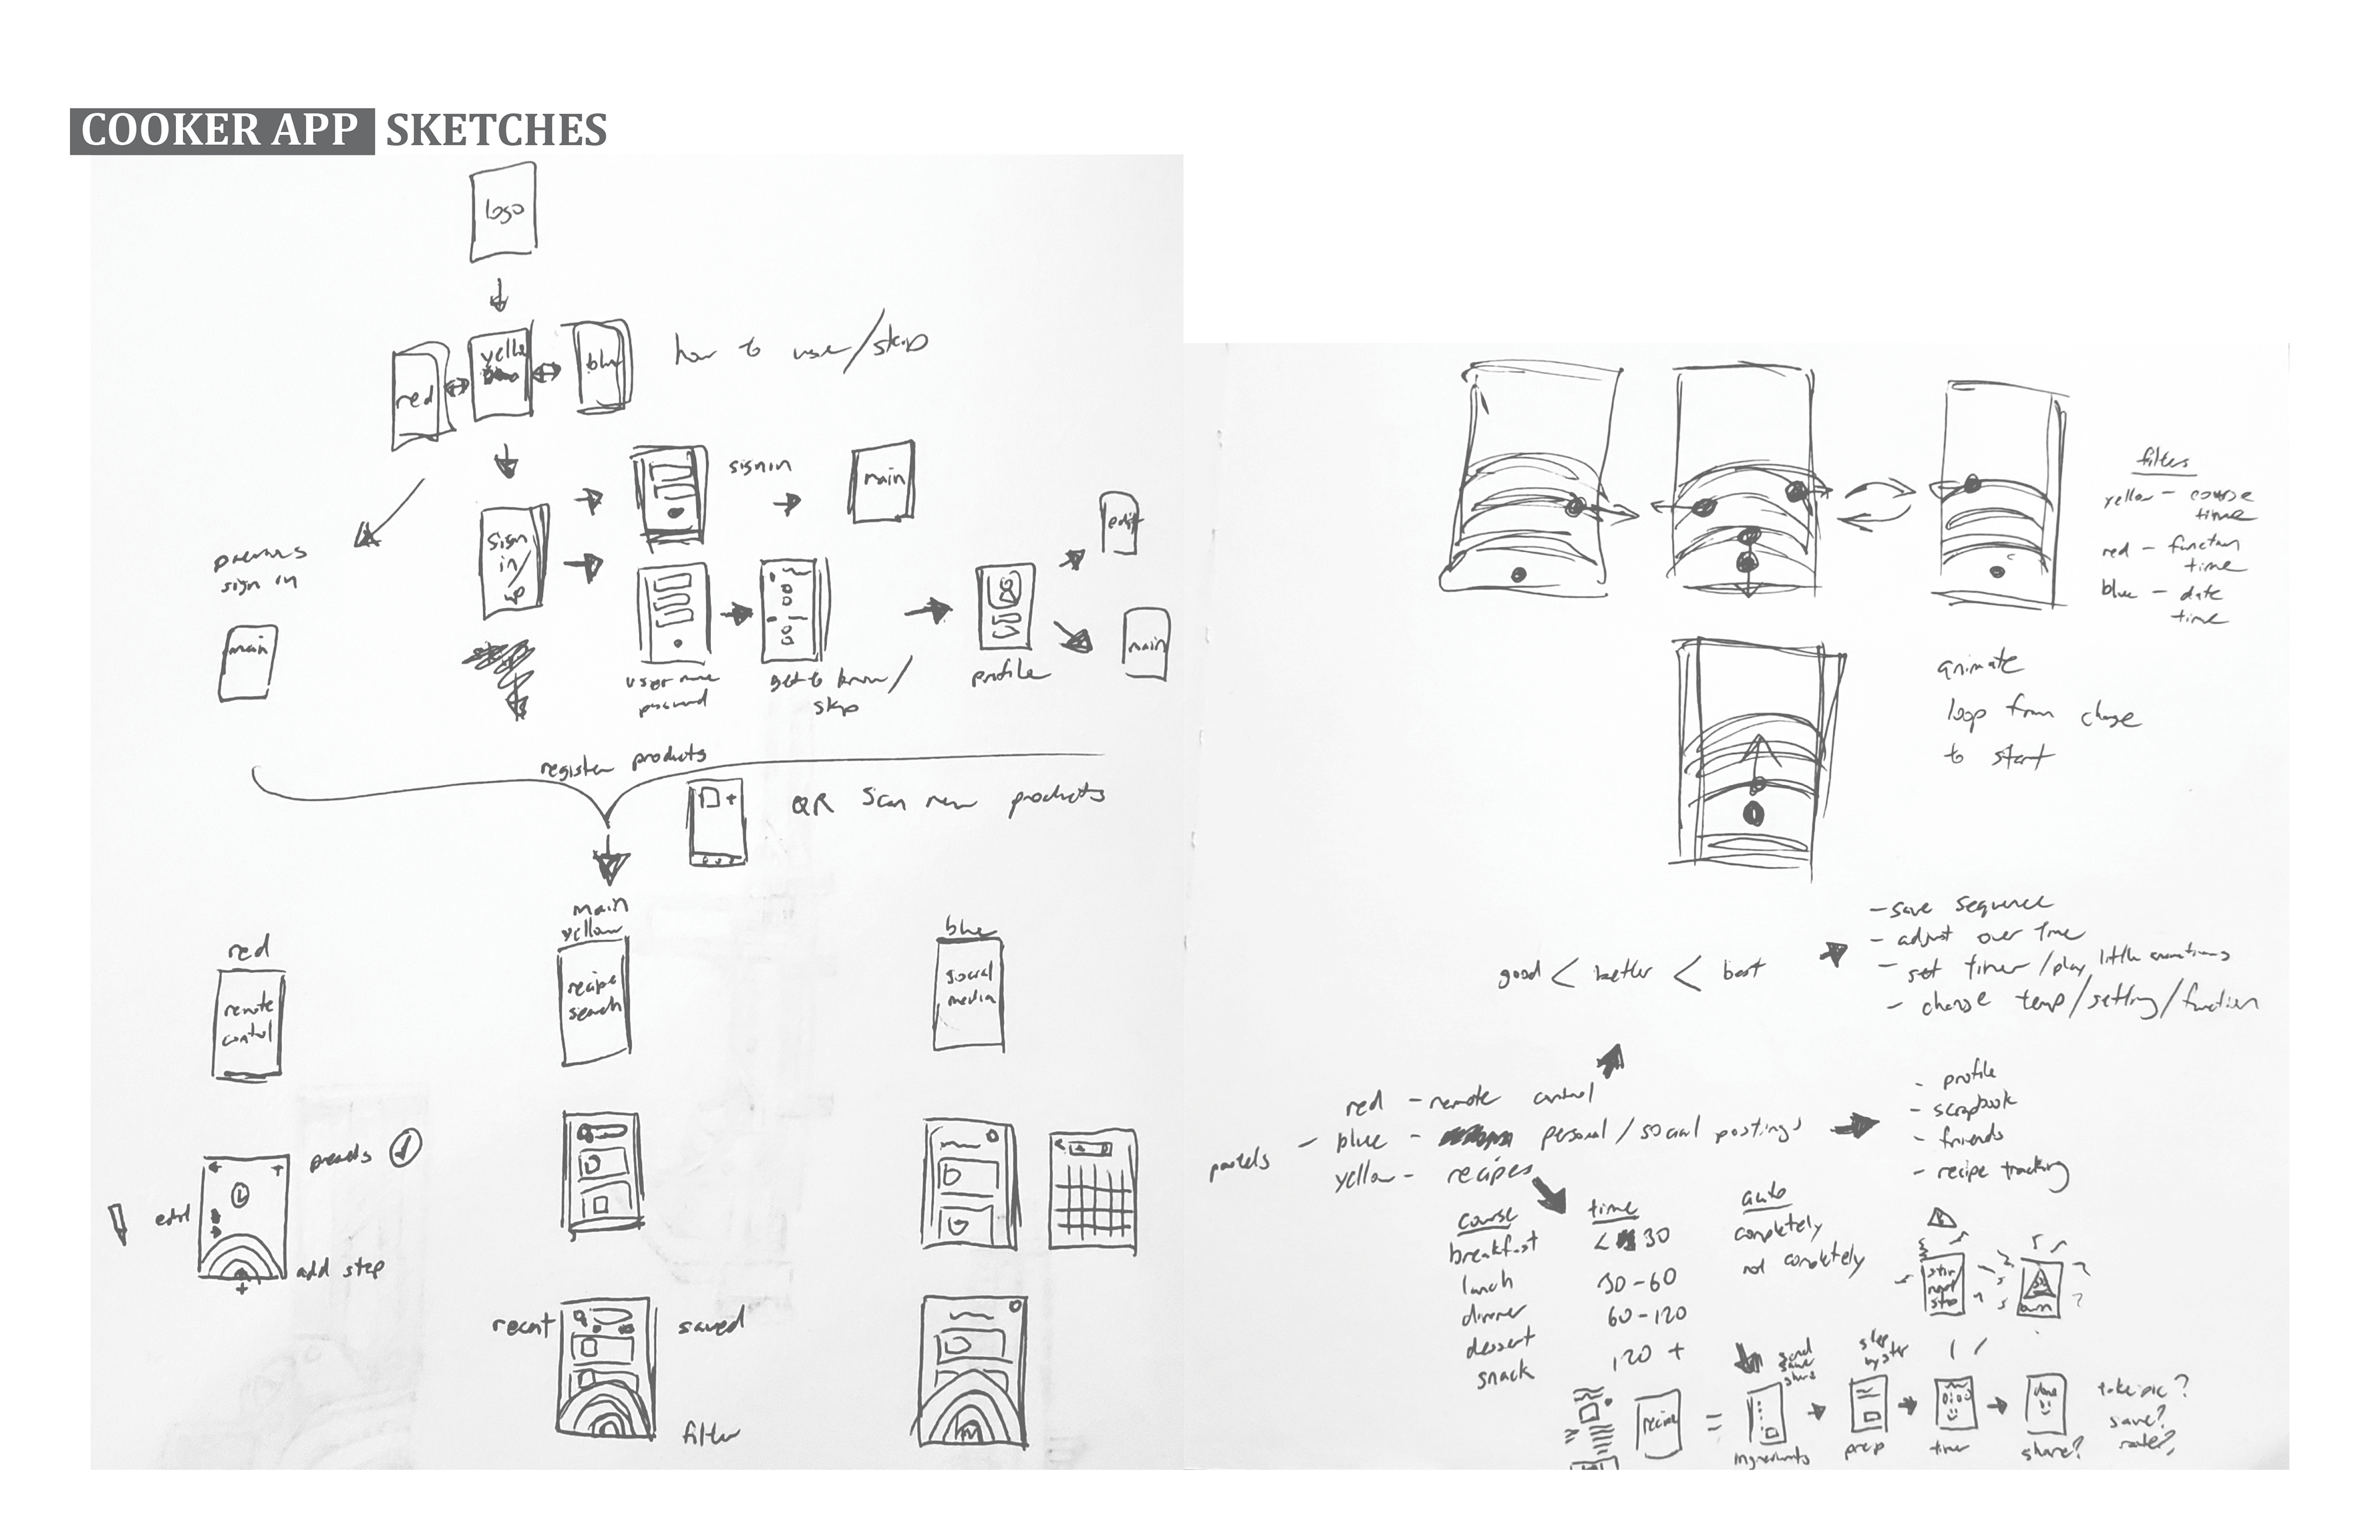 COOKER APP SKETCHES
logo
red
yellow
blue
how to use/skip
previous
sign in
main
sign
in/
up
sign in
main
user name
password
get to know/
skip
profile
edit
main
register products
QR Scan new products
red
remote
control
main
yellow
recipe
search
blue
social
media
presets
edit
add step
recent
saved
filter
filters
yellow - course
time
red - function
time
blue - date
time
animate
loop from change
to start
good < better < best
- save sequence
- adjust over time
- set timer/play little animations
- change temp/setting/function
pastels
red - remote control
- blue - personal/social postings
yellow - recipes
- profile
- scrapbook
- friends
- recipe tracking
course
breakfast
lunch
dinner
dessert
snack
time
< 30
30-60
60-120
120 +
auto
completely
not completely
stir
next
step
recipe
=
send
save
share
ingredients
step
by step
prep
timer
done
share?
take pic?
save?